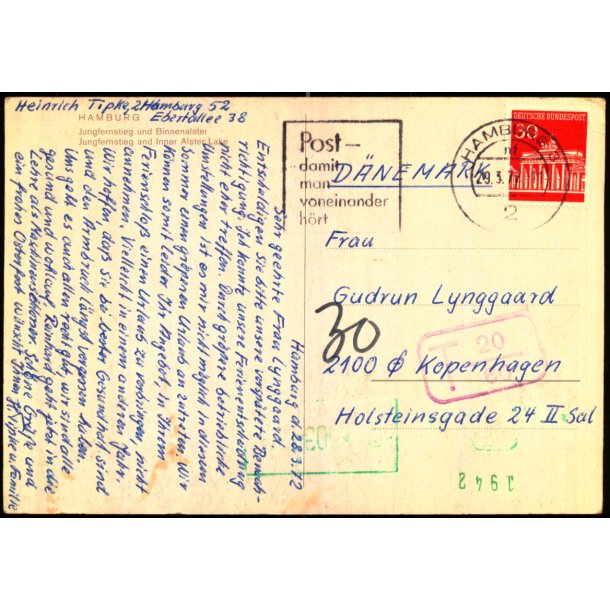 Heinrich Tipke, 2 Hamburg 52
Ebertallee 38
HAMBURG
Jungfernstieg und Binnenalster
Jungfernstieg and Inner Alster Lake
Hamburg 28.3.72
Sehr geehrte Frau Lynggaard
Entschuldigen Sie bitte unsere verspätete Benach-
richtigung. Ich konnte unsere Ferienentscheidung
nicht eher treffen. Durch größere betriebliche
Umstellungen ist es mir nicht möglich in diesem
Sommer einen größeren Urlaub anzutreten. Wir
können somit leider Ihr Angebot, in Ihrem
Ferienschloß einen Urlaub zu verbringen, nicht
ausnutzen. Vielleicht in einem anderen Jahr.
Wir hoffen, daß Sie bei bester Gesundheit sind
und den Armbruch längst vergessen haben.
Uns geht es auch allen recht gut, wir sind alle
gesund und wohlauf. Reinhard geht jetzt in die
Lehre als Maschinenschlosser. Schöne Grüße und
ein frohes Osterfest wünscht Ihnen H. Tipke u Familie
Post–
damit
man
voneinander
hört
DEUTSCHE BUNDESPOST
30
HAMBURG
29.3.72
2
DÄNEMARK
Frau
Gudrun Lynggaard
2100 Ø Kopenhagen
Holsteinsgade 24 II Sal
30
T 20
1942